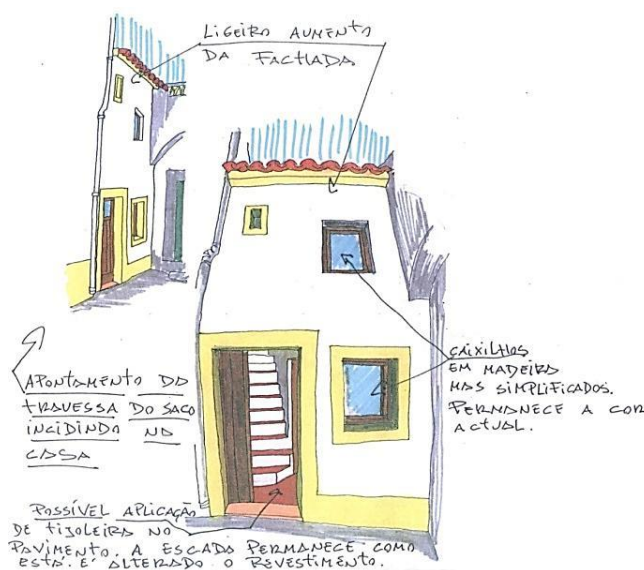 LIGEIRO AUMENTO
DA FACHADA
APONTAMENTO DA
TRAVESSA DO SACO
INCIDINDO NA
CASA
CAIXILHOS
EM MADEIRA
MAS SIMPLIFICADOS.
PERMANECE A COR
ACTUAL.
POSSÍVEL APLICAÇÃO
DE TIJOLEIRA NO
PAVIMENTO. A ESCADA PERMANECE COMO
ESTÁ. É ALTERADO O REVESTIMENTO.